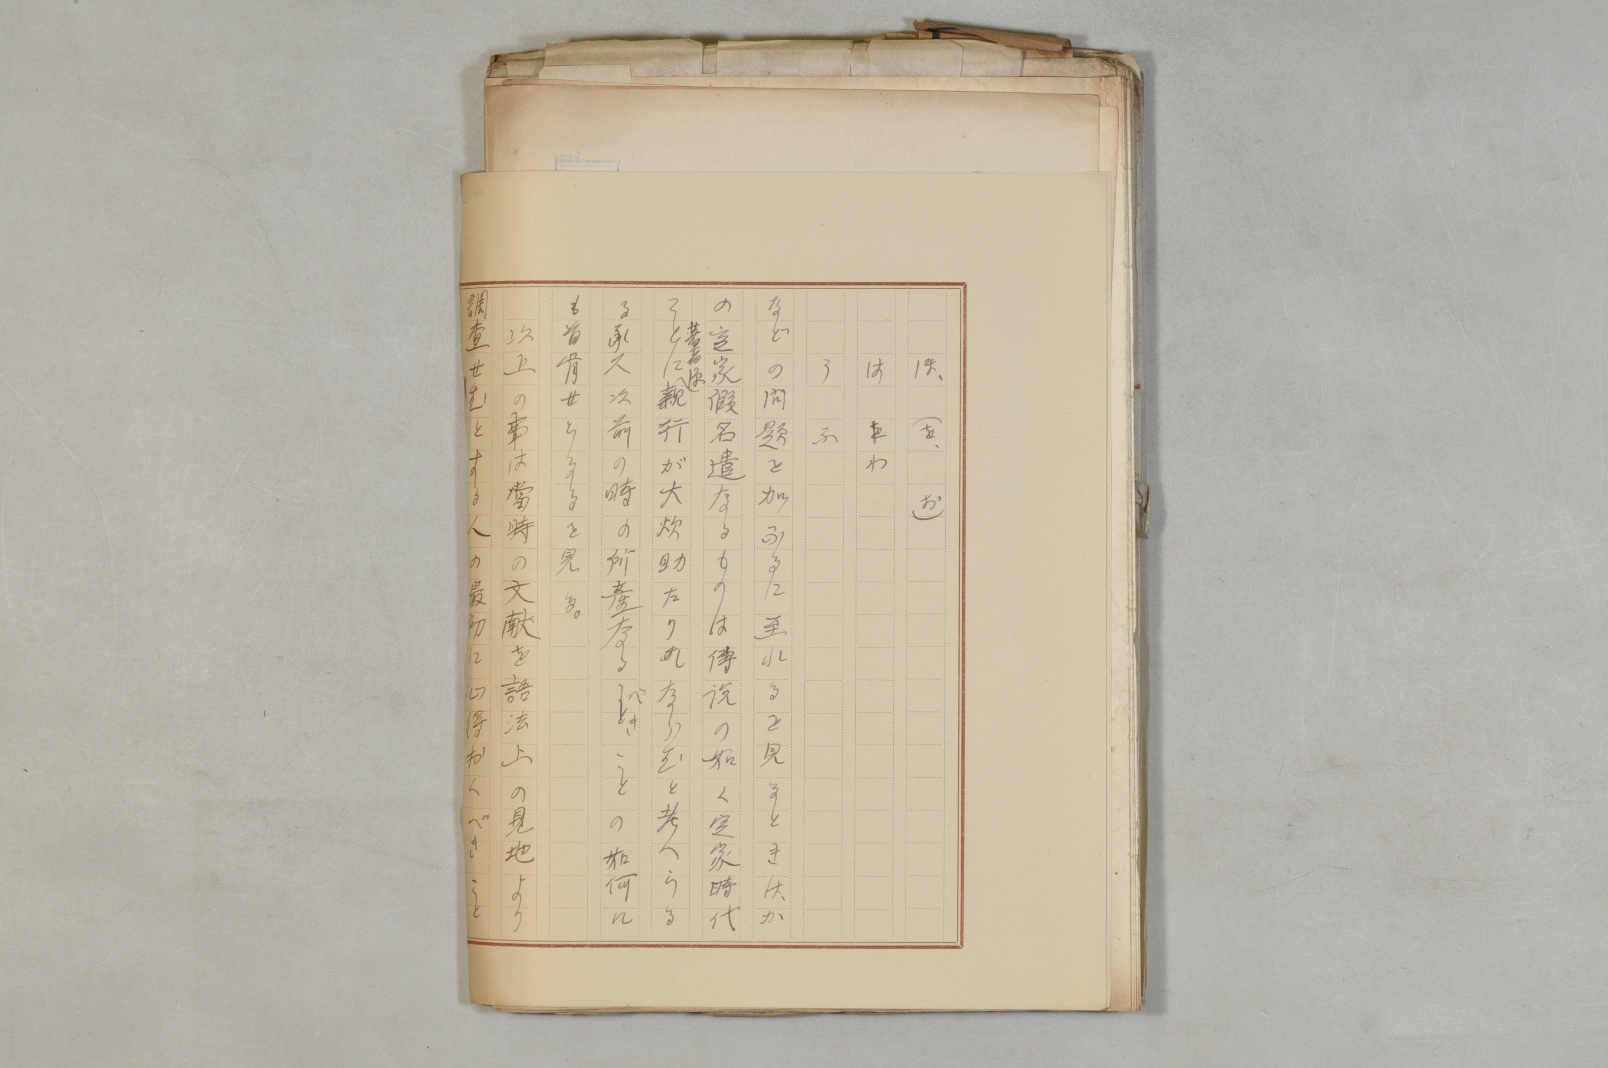 ほ、（を、お）
は　わ
う　ふ
などの問題を加ふるに至れるを見るときは、か
の定家假名遣なるものは傳説の如く定家時代
ことに著者源親行が大炊助たりしならむと考へらる
る承久以前の時の所産なるべきことの如何に
も首肯せらるるを見る。
以上の事は當時の文献を語法上の見地より
調査せむとする人の最初に心得おくべきこと